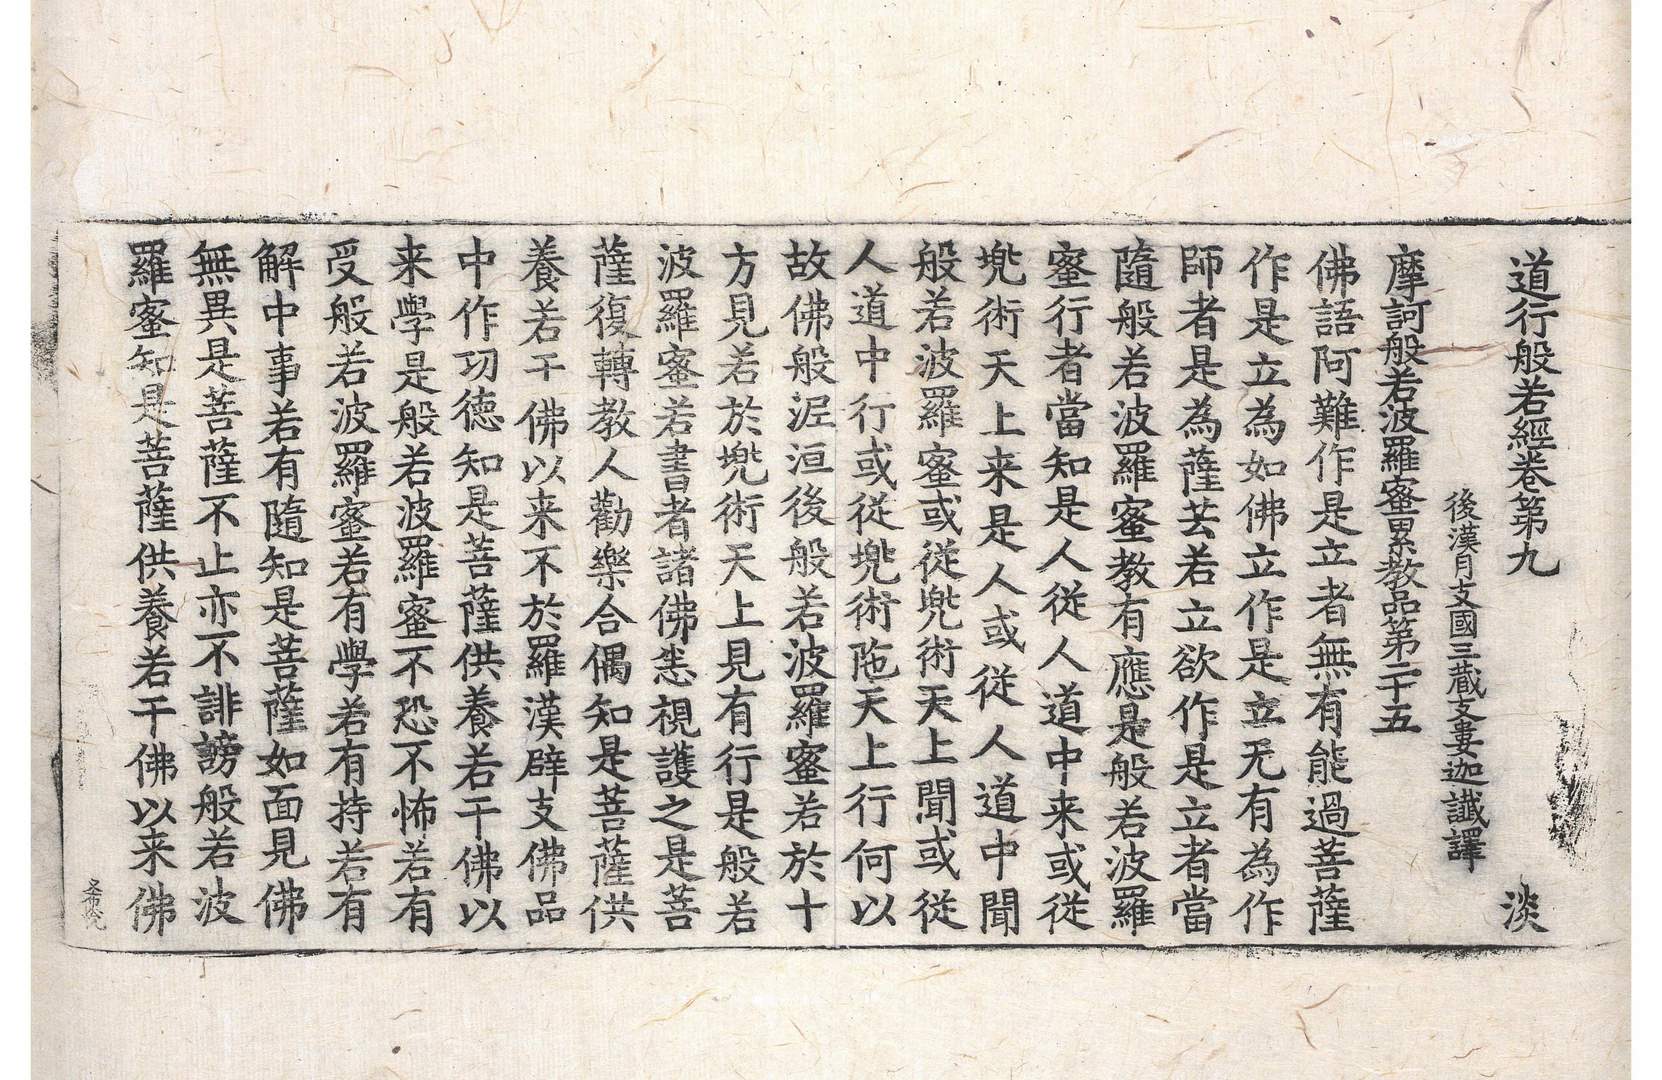 道行般若經卷第九　淡
後漢月支國三藏支婁迦讖譯
摩訶般若波羅蜜累教品第二十五
佛語阿難作是立者無有能過菩薩
作是立為如佛立作是立无有為作
師者是為薩芸若立欲作是立者當
隨般若波羅蜜教有應是般若波羅
蜜行者當知是人從人道中来或從
兠術天上来是人或從人道中聞
般若波羅蜜或從兠術天上聞或從
人道中行或從兠術陁天上行何以
故佛般泥洹後般若波羅蜜若於十
方見若於兠術天上見有行是般若
波羅蜜若書者諸佛悉視護之是菩
薩復轉教人勸樂合偶知是菩薩供
養若干佛以来不於羅漢辟支佛品
中作功德知是菩薩供養若干佛以
来學是般若波羅蜜不恐不怖若有
受般若波羅蜜若有學若有持若有
解中事若有隨知是菩薩如面見佛
無異是菩薩不止亦不誹謗般若波
羅蜜知是菩薩供養若干佛以来佛